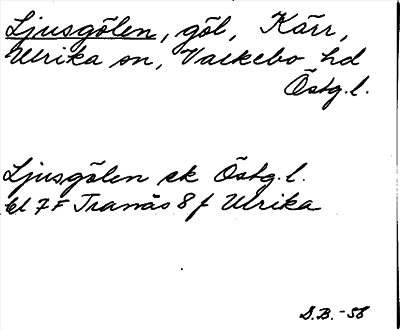 Ljusgölen, göl, Kärr,
Ulrika sn, Valkebo hd
Östg.l.
Ljusgölen ek Östg.l.
bl 7F Tranås 8 f Ulrika
S.B.-58